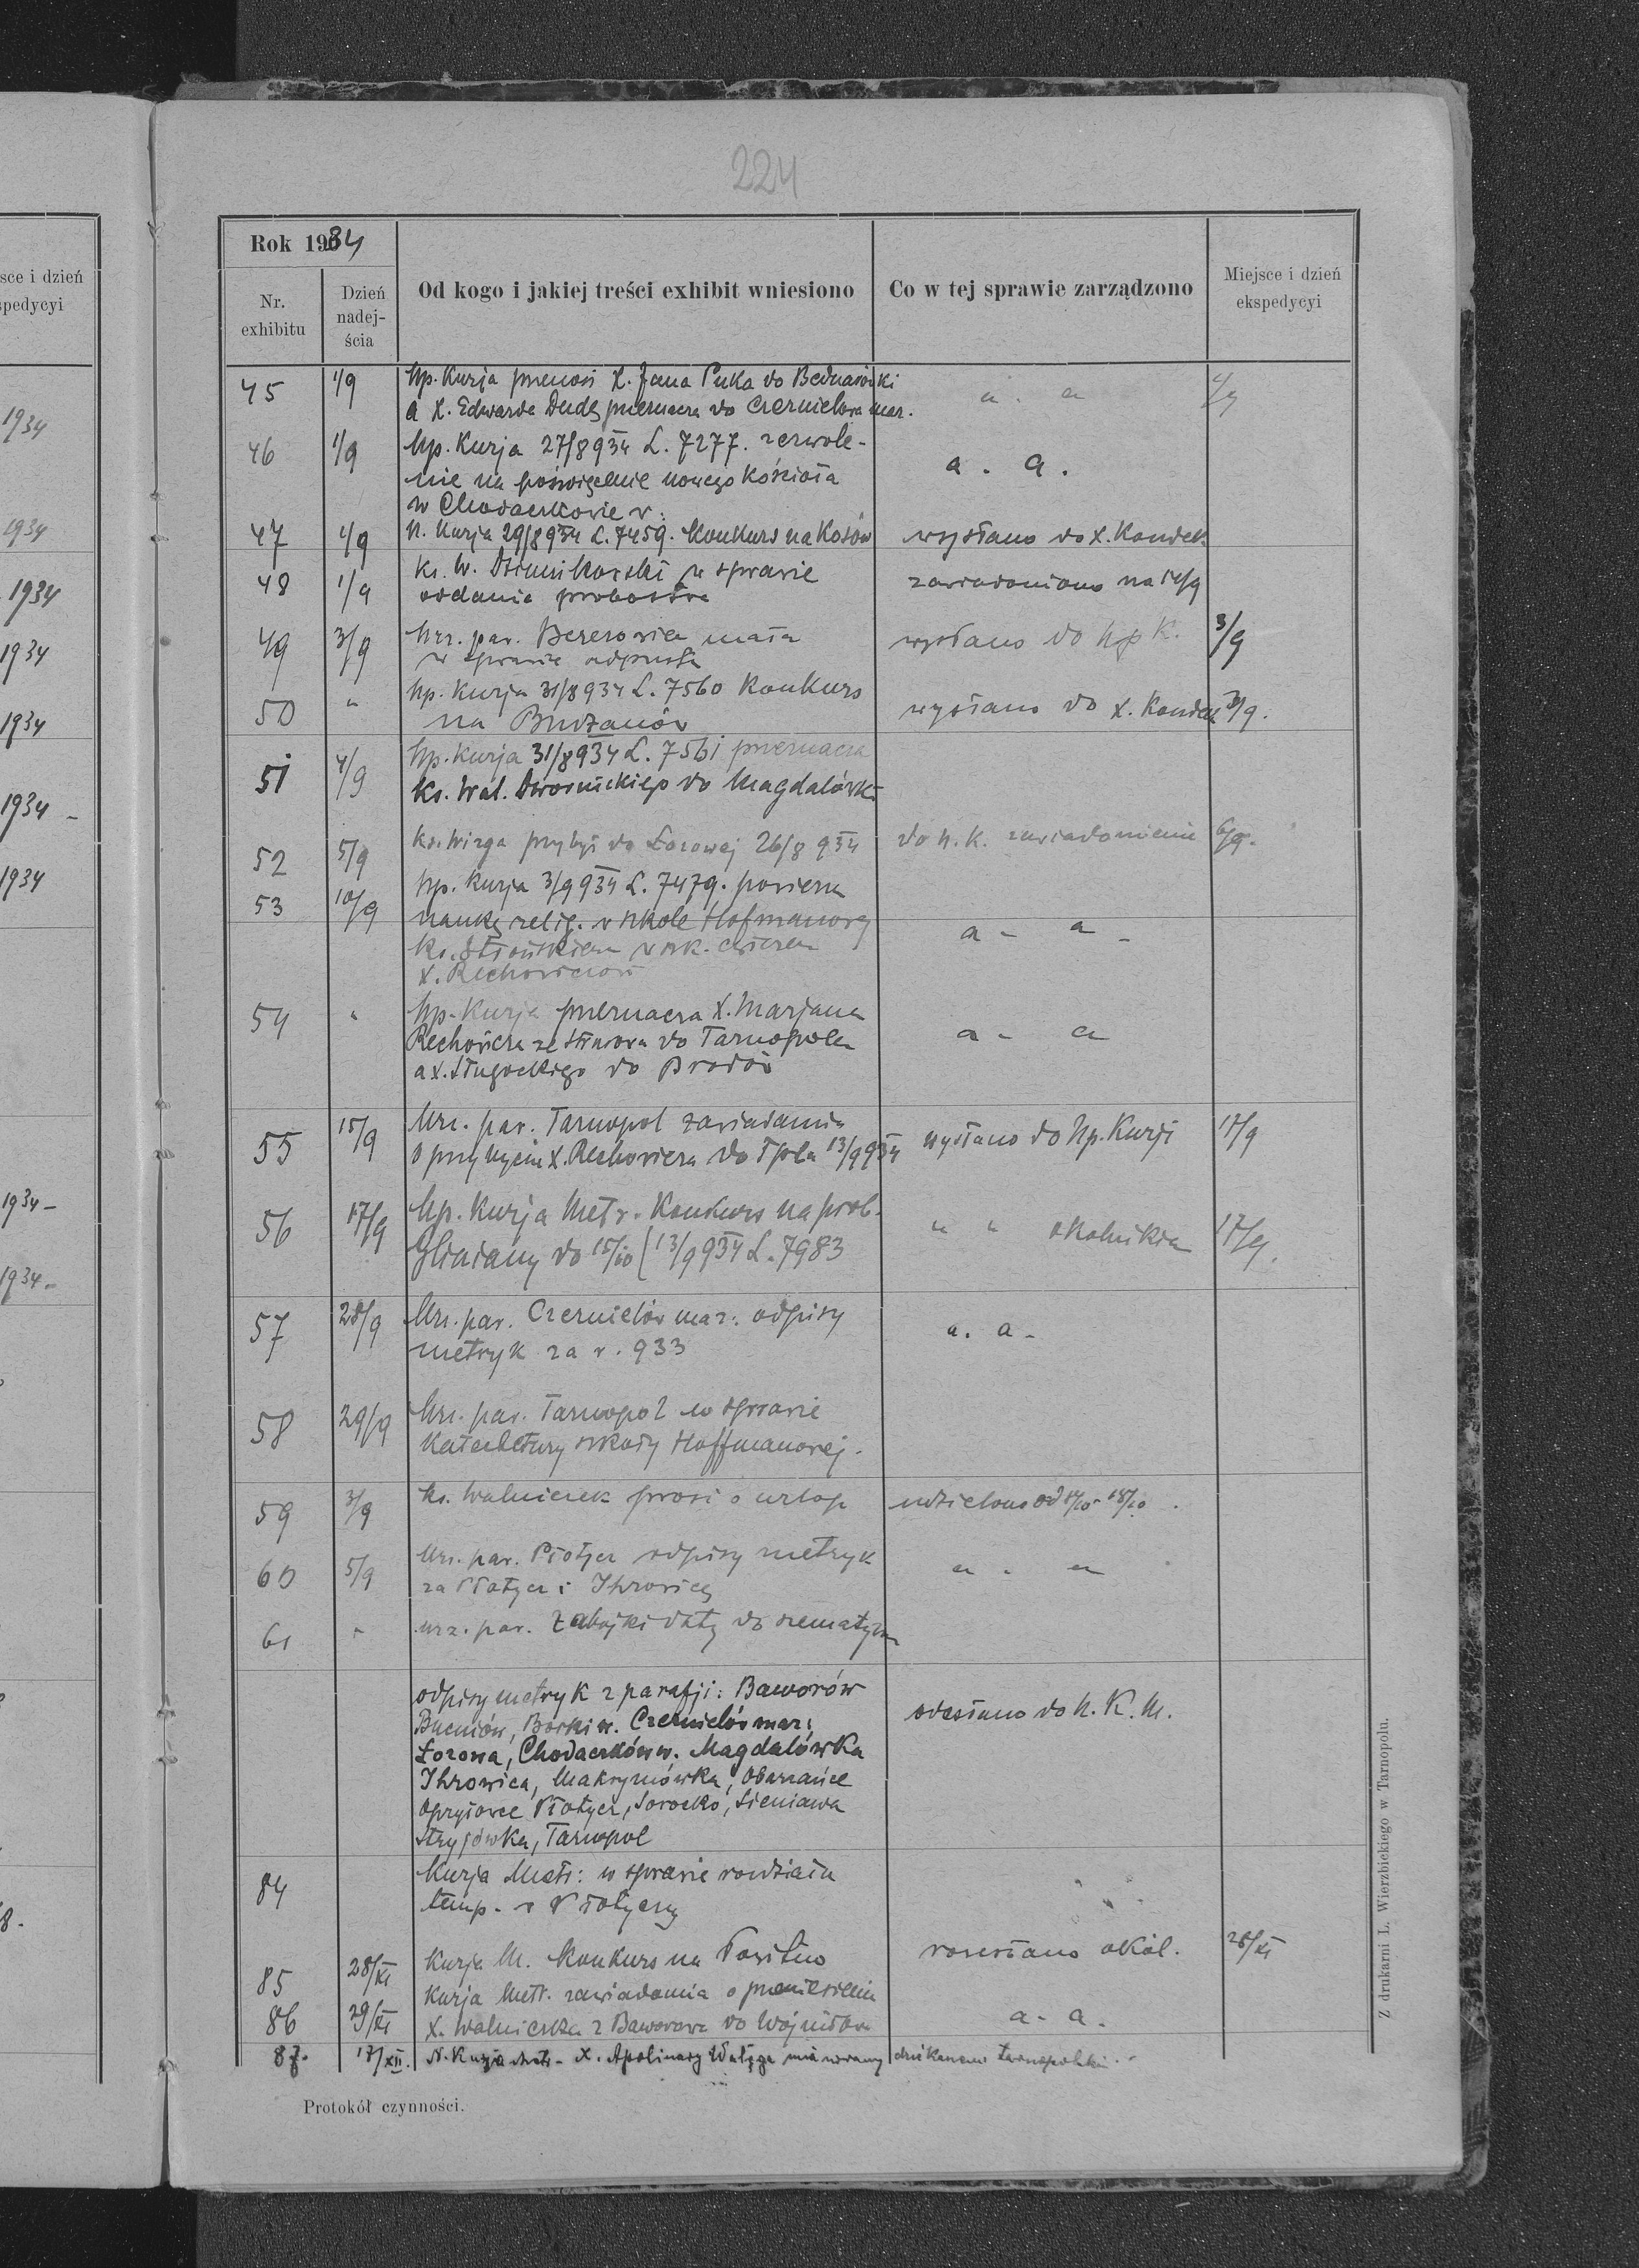 224
Rok 1934
Nr. exhibitu
Dzień nadejścia
Od kogo i jakiej treści exhibit wniesiono
Co w tej sprawie zarządzono
Miejsce i dzień ekspedycyi
sce i dzień
spedycyi
1934
1934
1934
1934
1934
1934 -
1934
1934 -
1934 -
8.
45 1/9 Np. Kurja przenosi X. Jana Puka do Bednarówki a - a
a X. Edwarda Dudę przeznacza do Czernielowa maz.
46 1/9 Np. Kurja 27/8 934 L. 7277. zezwole- a. a.
nie na poświęcenie nowego Kościoła
w Chodaczkowie w.
47 1/9 N. Kurja 29/8 934 L. 7459. Konkurs na Kosów wysłano do X. Kondek.
48 1/9 ks. W. w sprawie zawiadomiono na 14/9
oddania probostwa
49 3/9 Urz. par. Berezowica mała wysłano do Np K. 3/9
w sprawie odpustu
50 " Np. Kurja 31/8 934 L. 7560 Konkurs
na Budzanów wysłano do X. Kondek.
51 4/9 Np. Kurja 31/8 934 L. 7561 przeznacza
ks. Wal. Dwornickiego do Magdalówki
52 5/9 ks. Wizga przybył do Łozowej 26/8 934 do N. K. zawiadomienie 6/9.
53 10/9 Np. Kurja 3/9 934 L. 7479. powierza
naukę relig. w szkole Hofmanowej a - a -
X. Rechowiczowi
54 " Np. Kurja przeznacza X. Marjana
Rechowicza ze do Tarnopola a - a
a X. Długockiego do Brodów
55 15/9 Urz. par. Tarnopol zawiadamia
o przybyciu X. Rechowicza do Tpola 13/9 934 wysłano do Np. Kurji 17/9
56 17/9 Np. Kurja Metr. Konkurs na prob. " " okolnikiem 17/9.
Gliniany do 15/10 (13/9 934 L. 7983
57 28/9 Urz. par. Czernielów maz. odpisy a. a -
metryk za r. 933
58 29/9 Urz. par. Tarnopol w sprawie
Katechetury szkoły Hoffmanowej.
59 3/9 ks. Walniczek prosi o urlop udzielono od 17/10 - 18/10.
60 5/9 Urz. par. Płotycz odpisy metryk a - a
za Płotycz i Ihrowicę
61 " urz. par. Zabojki daty do szematyzm
odpisy metryk z parafji: Baworów odesłano do N. K. M.
Bucniów, Borki w. Czernielów maz:
Łozowa, Chodaczków w. Magdalówka
Ihrowica, Maksymówka, Obarzańce
Opryłowce Płotycz, Sorocko, Sieniawa
Stryjówka, Tarnopol
84 Kurja Metr: w sprawie rozdziału
temp. w Płotyczy
85 28/XI Kurja M. Konkurs na Towstuo rozesłano okól. 28/XI
86 29/XI Kurja Metr. zawiadamia o przeniesieniu
X. Walniczka z Baworowa do Wojniłowa a. a.
87. 17/XII. N. Kurja Metr. X. Apolinary Wałęga mianowany dziekanem tarnopolskim.
Protokół czynności.
Z drukarni L. Wierzbickiego w Tarnopolu.